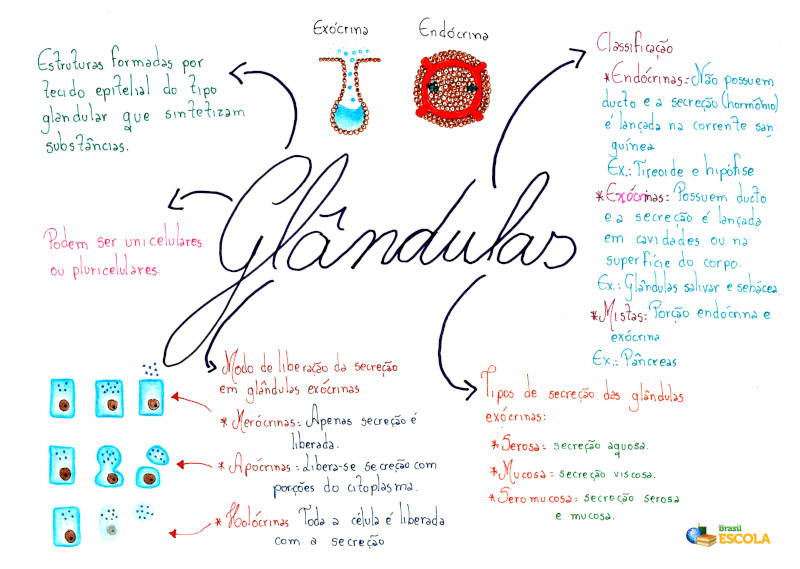 Exócrina
Endócrina
Estruturas formadas por
tecido epitelial do tipo
glandular que sintetizam
substâncias.
Podem ser unicelulares
ou pluricelulares.
Glândulas
Classificação
*Endócrinas: Não possuem
ducto e a secreção (hormônio)
é lançada na corrente san
guínea
Ex.: Tireoide e hipófise
*Exócrinas: Possuem ducto
e a secreção é lançada
em cavidades ou na
superfície do corpo.
Ex.: Glândulas salivar e sebácea.
*Mistas: Porção endócrina e
exócrina
Ex.: Pâncreas
Modo de liberação da secreção
em glândulas exócrinas
*Merócrinas: Apenas secreção é
liberada.
*Apócrinas: Libera-se secreção com
porções do citoplasma.
*Holócrinas Toda a célula é liberada
com a secreção
Tipos de secreção das glândulas
exócrinas:
*Serosa: secreção aquosa.
*Mucosa: secreção viscosa.
*Seromucosa: secreção serosa
e mucosa.
Brasil
ESCOLA